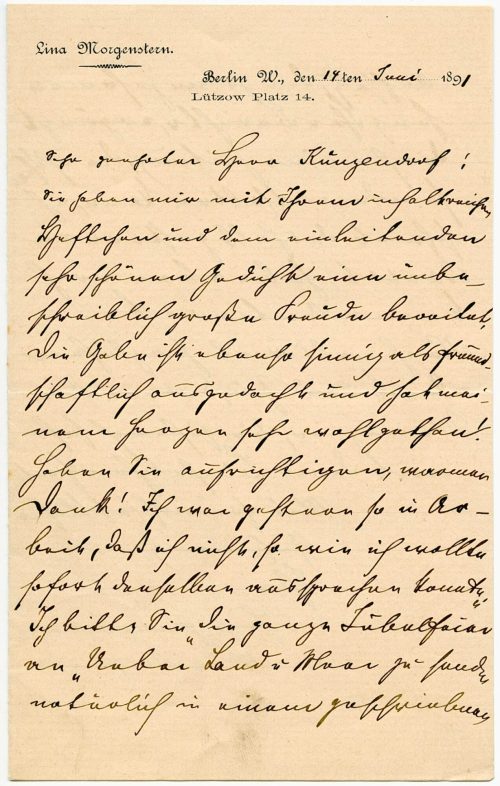 Lina Morgenstern.
Berlin W., den 14ten Juni 1891
Lützow Platz 14.
Sehr geehrter Herr Kunzendorf!
Sie haben mir mit Ihrem inhaltreichen
Heftchen und dem einleitenden
sehr schönen Gedicht eine unbe-
schreiblich große Freude bereitet,
die Gabe ist ebenso sinnig als freund-
schaftlich ausgedacht und hat mei-
nem Herzen sehr wohlgethan!
Haben Sie aufrichtigen, warmen
Dank! Ich war gestern so in Ar-
beit, daß ich nicht, so wie ich wollte
sofort denselben aussprechen konnte,
Ich bitte Sie die ganze Jubelfeier
an „Ueber Land u Meer zu senden
natürlich in einem geschriebenen